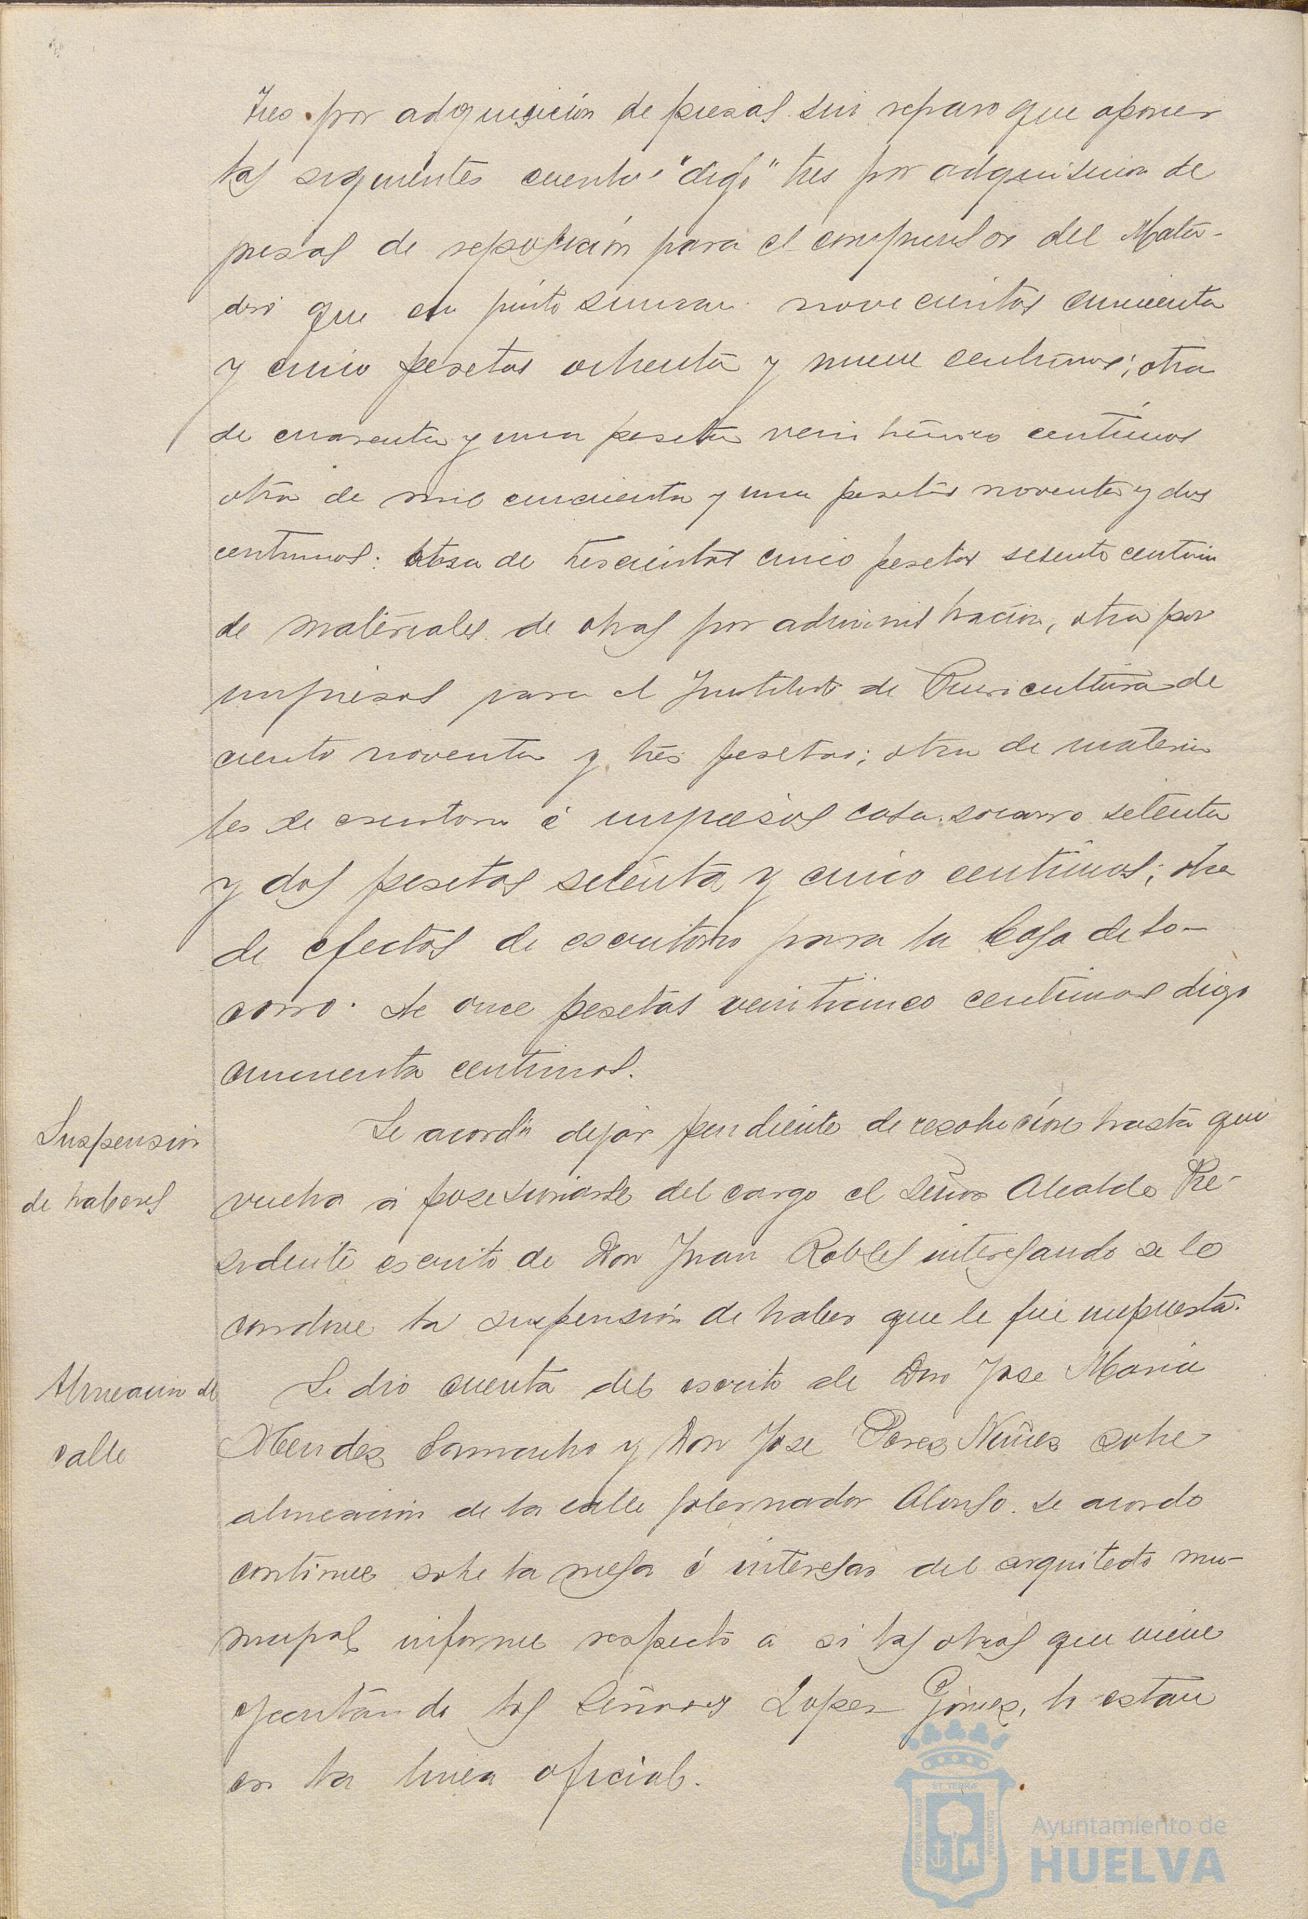 tres por adquisición de piezas sin reparo que oponer
las siguientes cuentas "digo" tres por adquisicion de
piezas de reposición para el compresor del Mata-
dero que en junto suman novecientas cincuenta
y cinco pesetas ochenta y nueve centimos; otra
de cuarenta y una peseta veinticinco centimos
otra de mil cincuenta y una pesetas noventa y dos
centimos; otra de trescientas cinco pesetas setenta centim
de materiales de obras por administración, otra por
impresos para el Instituto de Puericultura de
ciento noventa y tres pesetas; otra de materia
les de escritorio é impresos casa socorro setenta
y dos pesetas setenta y cinco centimos; otra
de efectos de escritorio para la Casa de So-
corro. de once pesetas veinticinco centimos digo
cincuenta centimos.
Suspension
de haberes
Se acordó dejar pendiente de resolución hasta que
vuelva a posesionarse del cargo el Señor Alcalde Pre-
sidente escrito de Don Juan Robles interesando se le
condone la suspensión de haber que le fue impuesta.
Alineacion de
calle
Se dio cuenta del escrito de Don Jose Maria
Mendez Camacho y Don Jose Perez Nuñez sobre
alineación de la calle Gobernador Alonso. Se acordo
continue sobre la mesa é interesar del arquitecto mu-
nicipal informe respecto a si las obras que viene
ejecutando los Señores Lopez Gomez, lo estan
en la linea oficial.
Ayuntamiento de
HUELVA